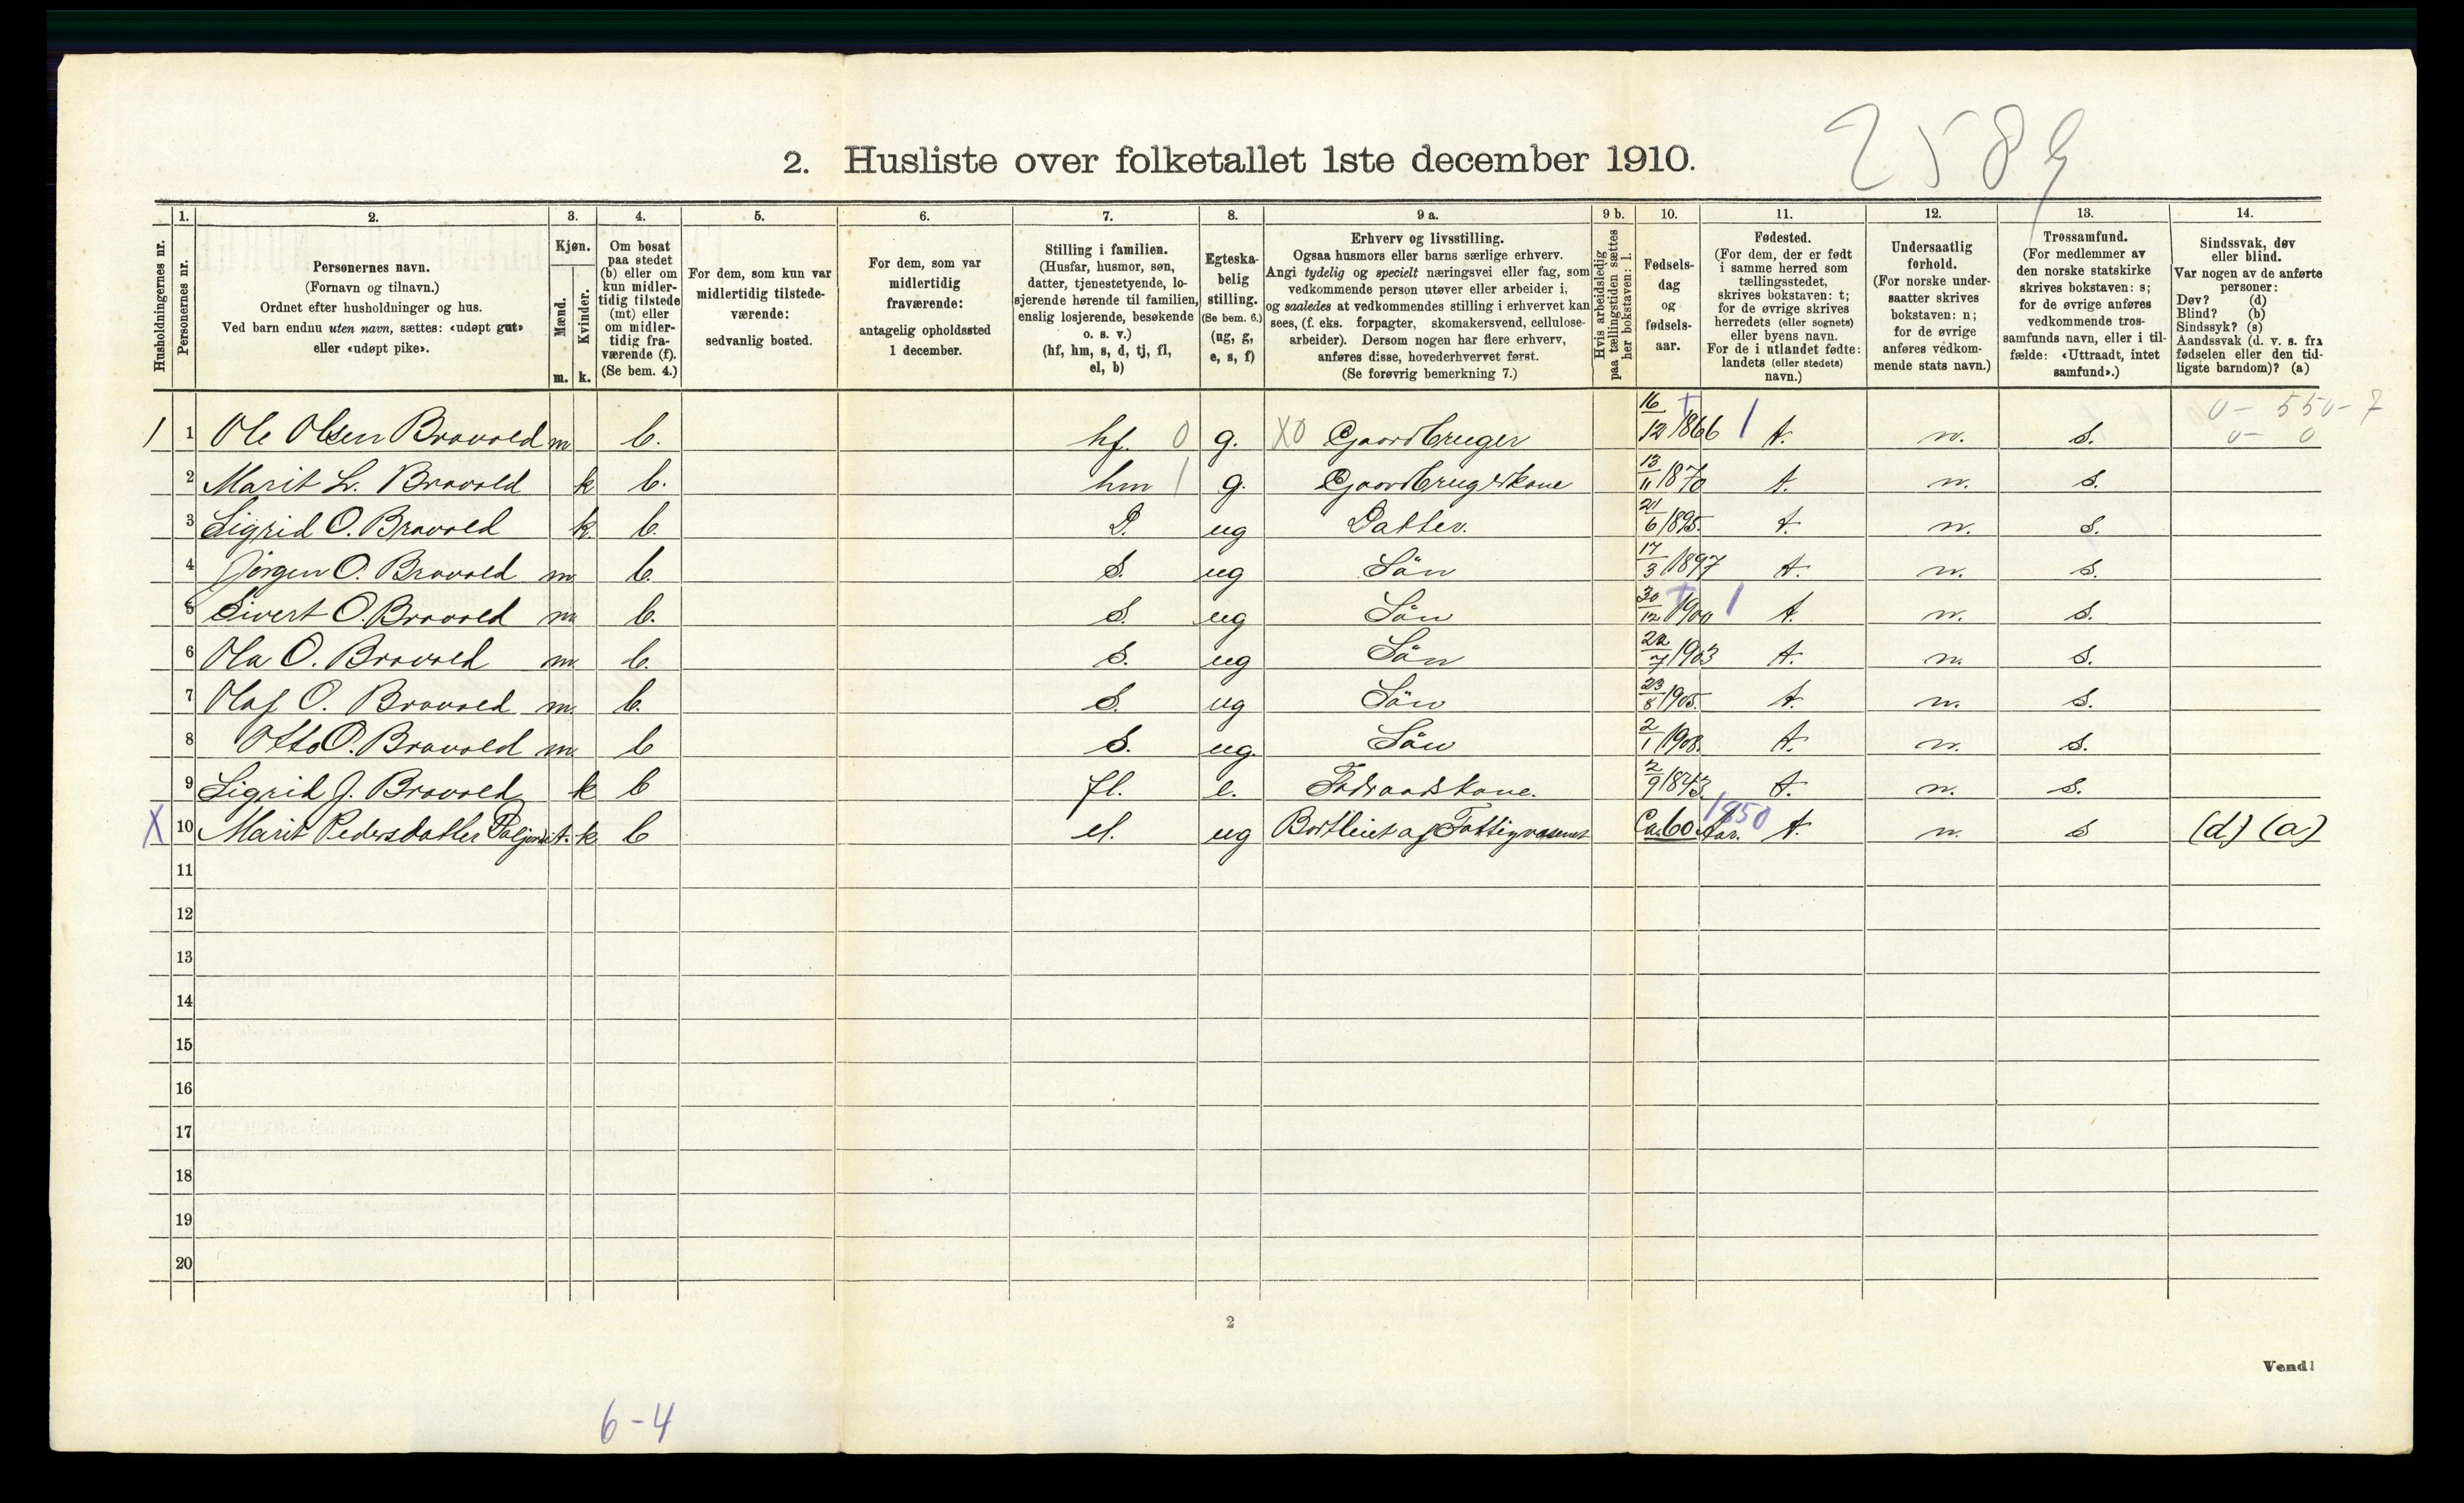 2589
2. Husliste over folketallet 1ste december 1910.
Husholdningernes nr.
1.
Personernes nr.
2.
Personernes navn.
(Fornavn og tilnavn.)
Ordnet efter husholdninger og hus.
Ved barn endnu uten navn, sættes: «udøpt gut»
eller «udøpt pike».
3.
Kjøn.
Mænd.
Kvinder.
m. k.
4.
Om bosat
paa stedet
(b) eller om
kun midler-
tidig tilstede
(mt) eller
om midler-
tidig fra-
værende (f).
(Se bem. 4.)
5.
For dem, som kun var
midlertidig tilstede-
værende:
sedvanlig bosted.
6.
For dem, som var
midlertidig
fraværende:
antagelig opholdssted
1 december.
7.
Stilling i familien.
(Husfar, husmor, søn,
datter, tjenestetyende, lo-
sjerende hørende til familien,
enslig losjerende, besøkende
o. s. v.)
(hf, hm, s, d, tj, fl,
el, b)
8.
Egteska-
belig
stilling.
(Se bem. 6.)
(ug, g,
e, s, f)
9 a.
Erhverv og livsstilling.
Ogsaa husmors eller barns særlige erhverv.
Angi tydelig og specielt næringsvei eller fag, som
vedkommende person utøver eller arbeider i,
og saaledes at vedkommendes stilling i erhvervet kan
sees, (f. eks. forpagter, skomakersvend, cellulose-
arbeider). Dersom nogen har flere erhverv,
anføres disse, hovederhvervet først.
(Se forøvrig bemerkning 7.)
9 b.
Hvis arbeidsledig
paa tællingstiden sættes
her bokstaven: l.
10.
Fødsels-
dag
og
fødsels-
aar.
11.
Fødested.
(For dem, der er født
i samme herred som
tællingsstedet,
skrives bokstaven: t;
for de øvrige skrives
herredets (eller sognets)
eller byens navn.
For de i utlandet fødte:
landets (eller stedets)
navn.)
12.
Undersaatlig
forhold.
(For norske under-
saatter skrives
bokstaven: n;
for de øvrige
anføres vedkom-
mende stats navn.)
13.
Trossamfund.
(For medlemmer av
den norske statskirke
skrives bokstaven: s;
for de øvrige anføres
vedkommende tros-
samfunds navn, eller i til-
fælde: «Uttraadt, intet
samfund».)
14.
Sindssvak, døv
eller blind.
Var nogen av de anførte
personer:
Døv? (d)
Blind? (b)
Sindssyk? (s)
Aandssvak (d. v. s. fra
fødselen eller den tid-
ligste barndom)? (a)
0 - 550 - 7
0 - 0
1 1 Ole Olsen Bravold m b. hf. 0 g. X0 Gaardbruger 16/12 1866 1 t. n. s.
2 Marit L. Bravold k b. hm 1 g. Gaardbrugerkone 13/11 1870 t. n. s.
3 Sigrid O. Bravold k. b. D. ug Datter. 21/6 1895. t. n. s.
4 Jørgen O. Bravold m. b. S. ug Sön 17/3 1897 t. n. s.
5 Sivert O. Bravold m. b. S. ug Sön 30/12 1900 1 t. n. s.
6 Ola O. Bravold m. b. S. ug Sön 22/7 1903 t. n. s.
7 Olaf O. Bravold m. b. S. ug Sön 23/8 1905. t. n. s.
8 Otto O. Bravold m. b S. ug. Sön 2/1 1908. t. n. s.
9 Sigrid J. Bravold k b fl. e. Födraadskone. 2/9 1843. t. n. s.
X 10 Marit Pedersdatter k b el. ug Bortleiet af Fattigvæsenet Ca. 60 Aar. 1850 t. n. s (d) (a)
11
12
13
14
15
16
17
18
19
20
2
Vend!
6 - 4